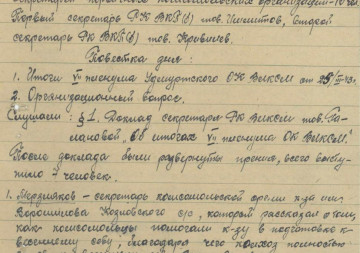 секретарей первичных комсомольских организаций - 10 чел.
Первый секретарь РК ВКП(б) тов. , второй
секретарь РК ВКП(б) тов. Кривилев.
Повестка дня:
1. Итоги VII пленума Удмуртского ОК ВЛКСМ от 25/III-43 г.
2. Организационный вопрос.
Слушали: § 1. Доклад секретаря РК ВЛКСМ тов. Га-
лановой „Об итогах VII пленума ОК ВЛКСМ".
После доклада были развернуты прения, всего высту-
пило 7 человек.
1. Мерзляков - секретарь комсомольской организации к-за им.
Ворошилова Козловского с/с, который рассказал о том,
как комсомольцы помогали к-зу в подготовке к
весеннему севу, благодаря чего колхоз полностью